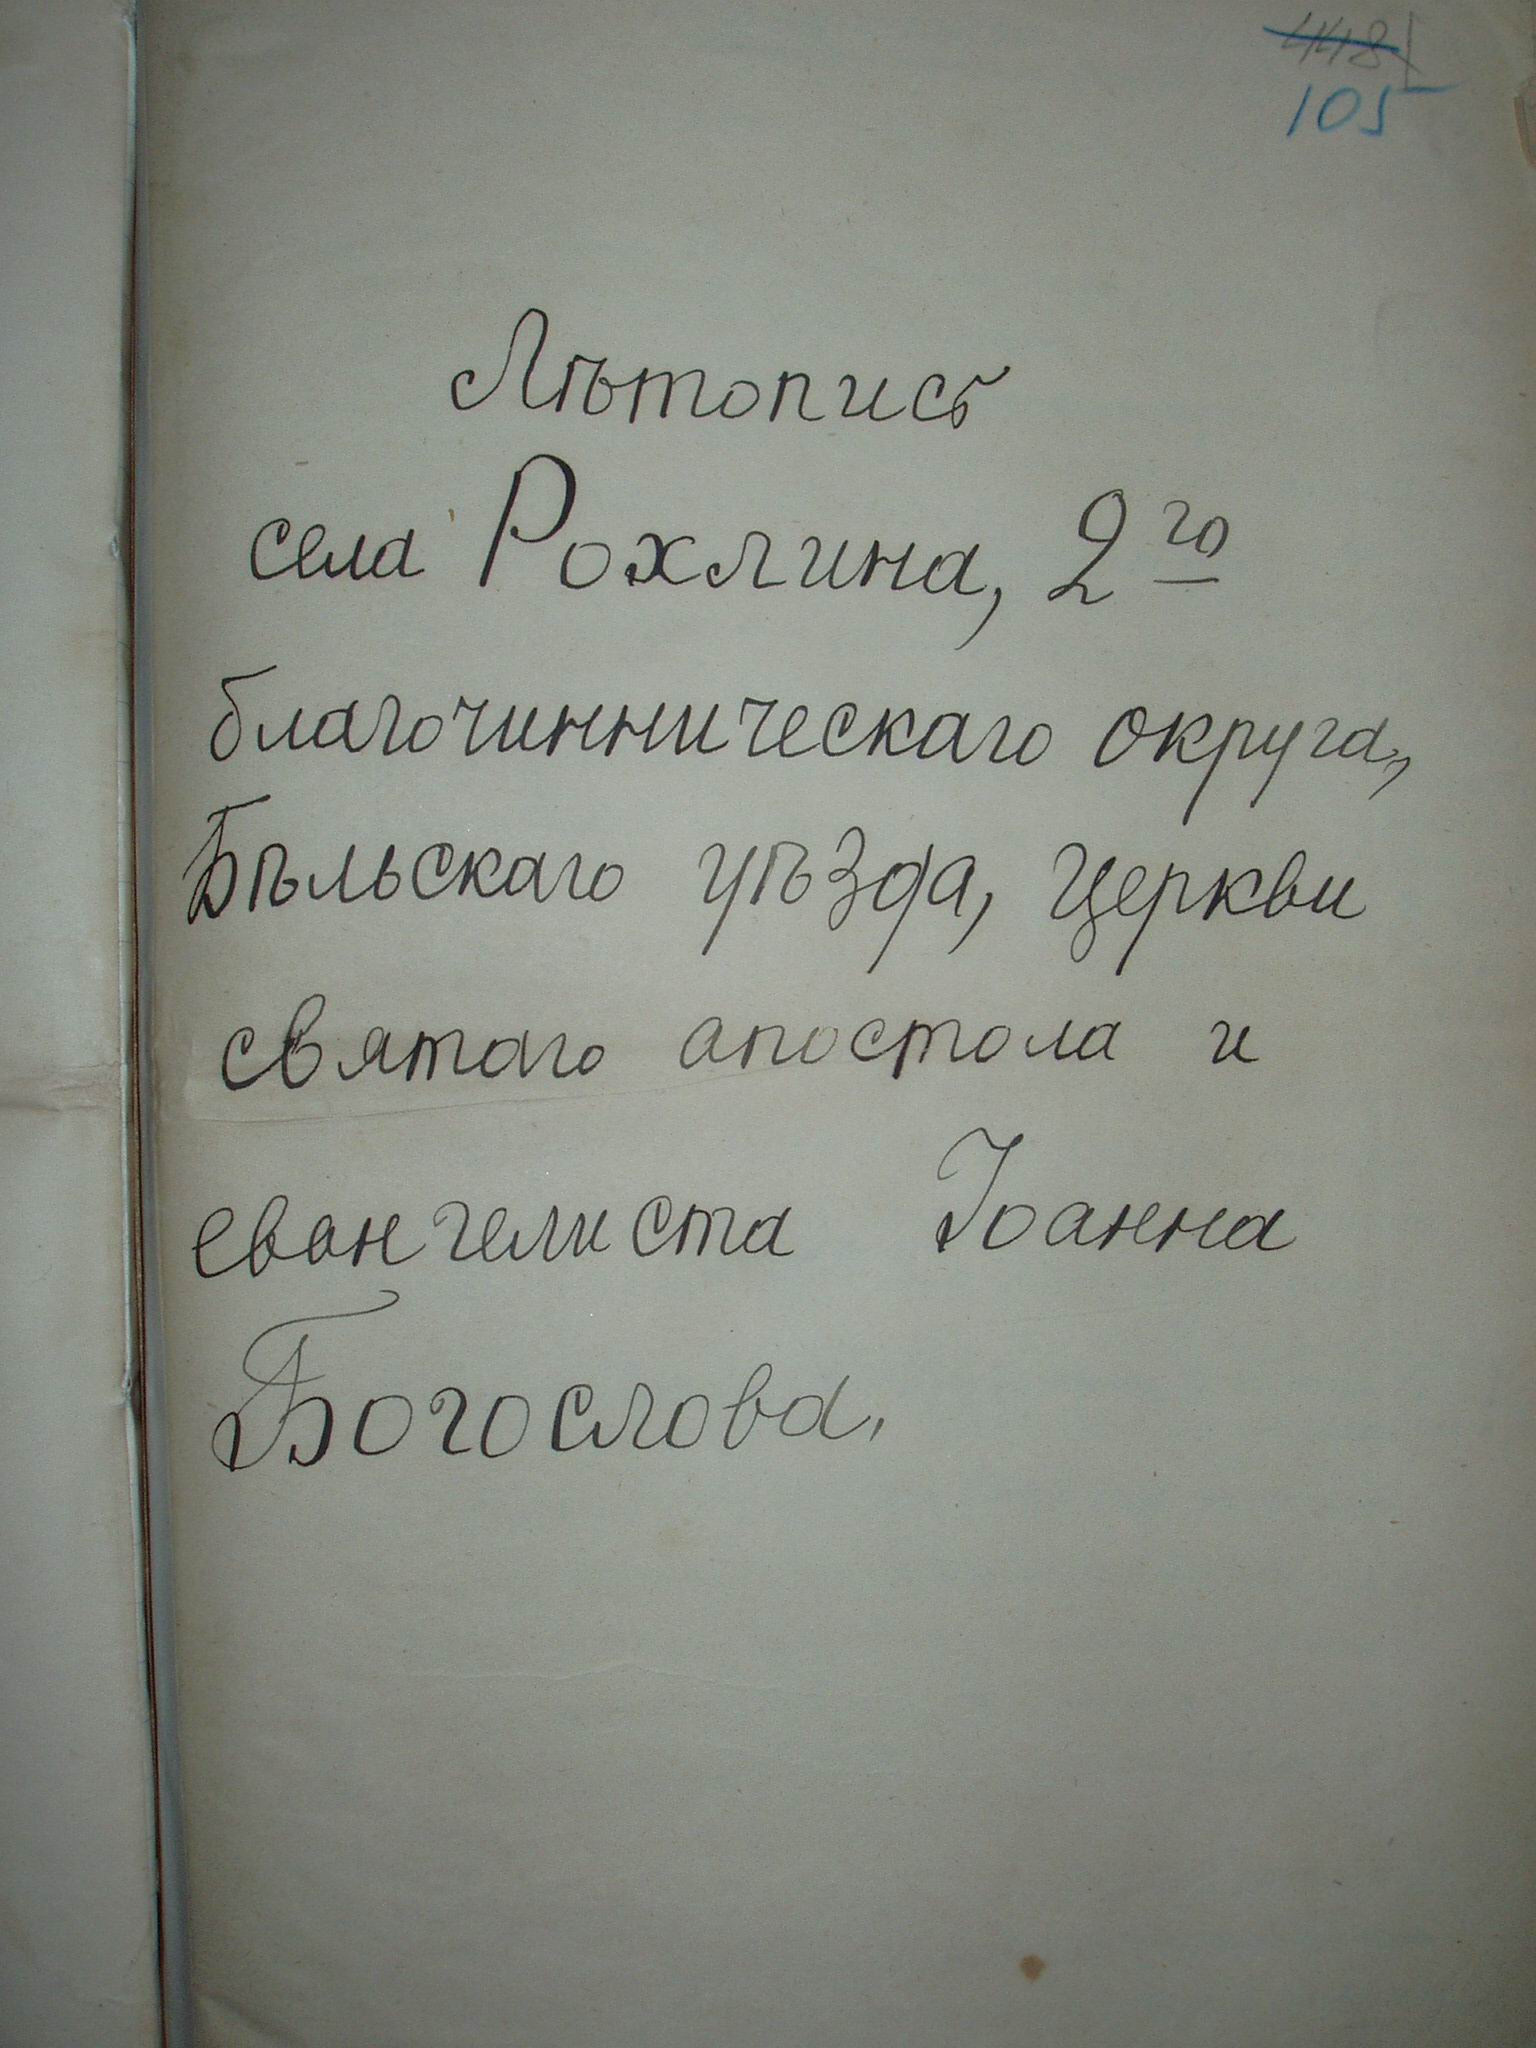 448
105
Лѣтопись
села Рохлина, 2го
благочинническаго округа,
Бѣльскаго уѣзда, церкви
святаго апостола и
евангелиста Іоанна
Богослова.